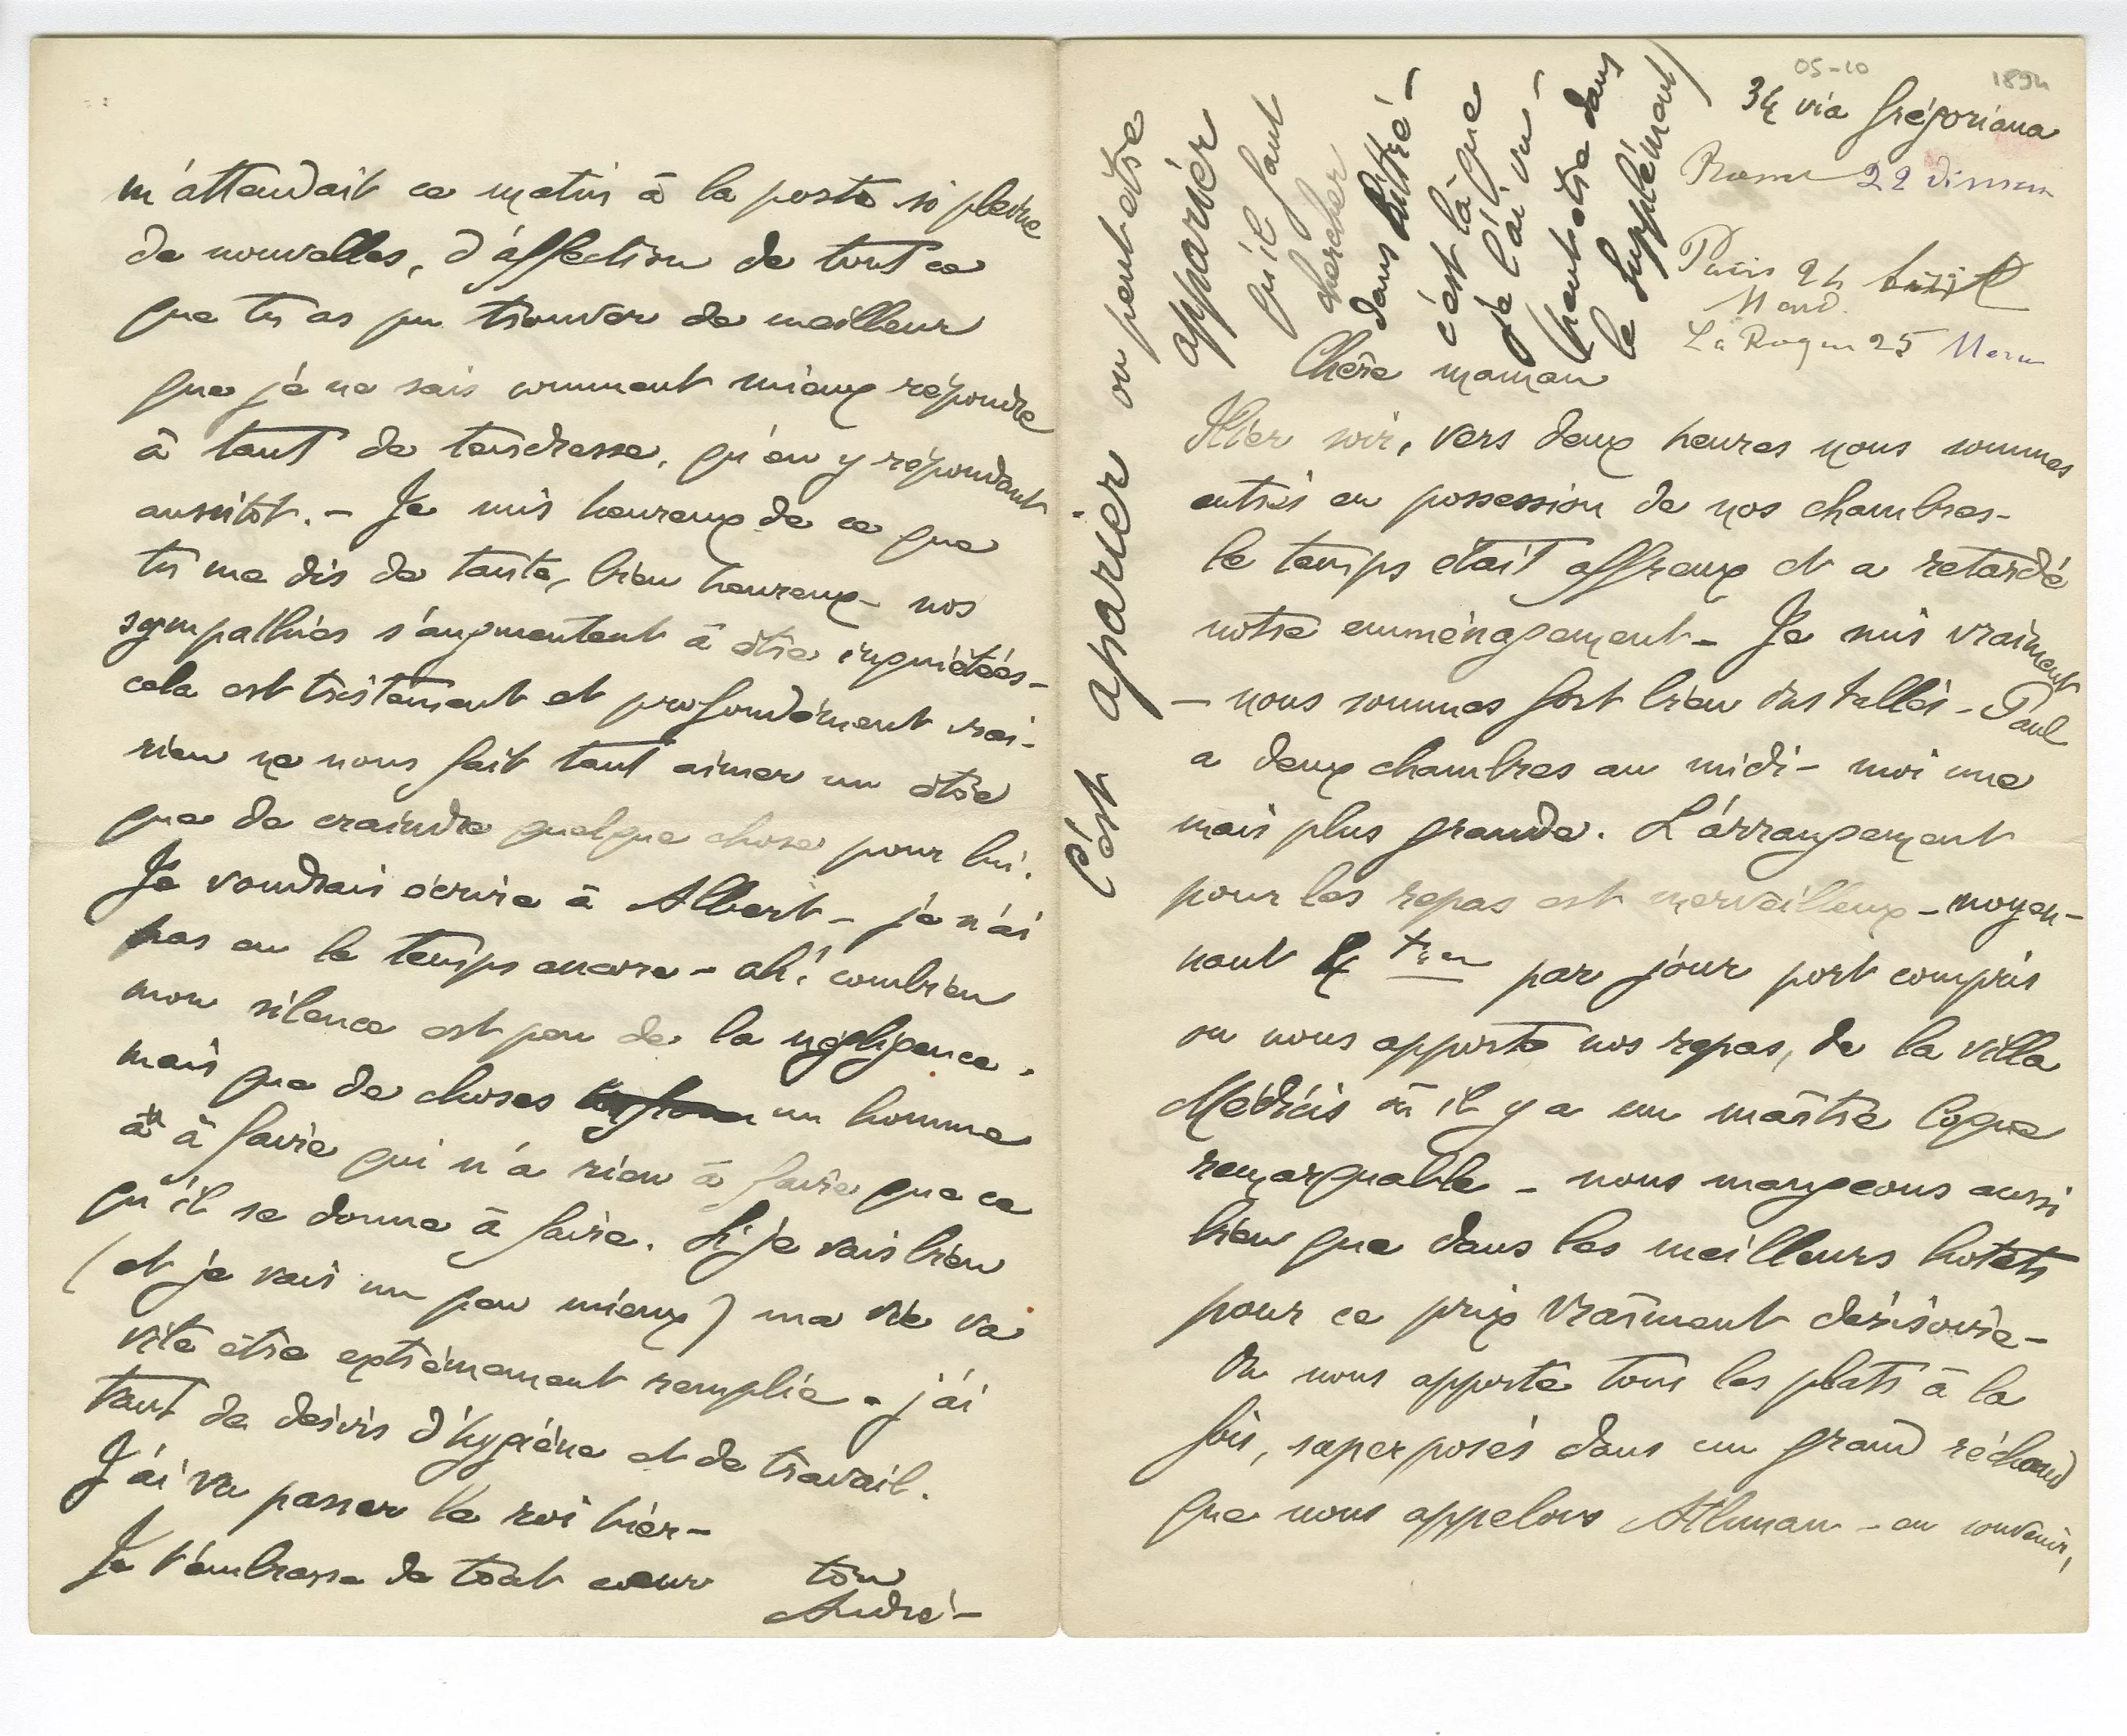 05-10
1894
34 via Grégoriana
Rome 22 dimen
Paris 24
Mard.
La Roque 25 Mercr
C'est aparier ou peut etre
apparier
qu'il faut
chercher
dans Littré -
c'est là que
je l'ai vu -
(peut etre dans
le supplément)
Chère maman
Hier soir, vers deux heures nous sommes
entrés en possession de nos chambres -
le temps était affreux et a retardé
notre emménagement - Je suis vraiment
- nous sommes fort bien installés - Paul
a deux chambres au midi - moi une
mais plus grande. L'arrangement
pour les repas est merveilleux - moyen-
nant 4 par jour port compris
on nous apporte nos repas, de la villa
Médicis où il y a un maître coque
remarquable - nous mangeons aussi
bien que dans les meilleurs hotels
pour ce prix vraiment dérisoire -
On nous apporte tous les plats à la
fois, superposés dans un grand réchaud
que nous appelons Athman - en souvenir,
m'attendait ce matin à la poste si pleine
de nouvelles, d'affection de tout ce
que tu as pu trouver de meilleur
que je ne sais comment mieux répondre
à tant de tendresse, qu'en y répondant
aussitot. - Je suis heureux de ce que
tu me dis de tante, bien heureux - nos
sympathies s'augmentent à être inquiétées -
cela est tristement et profondément vrai -
rien ne nous fait tant aimer un être
que de craindre quelque chose pour lui.
Je voudrais écrire à Albert - je n'ai
pas eu le temps encore - ah! combien
mon silence est peu de la négligence.
mais que de choses un homme
a à faire qui n'a rien à faire que ce
qu'il se donne à faire. Si je vais bien
(et je vais un peu mieux) ma vie va
vite être extrêmement remplie - j'ai
tant de désirs d'hygiène et de travail.
J'ai vu passer le roi hier -
Je t'embrasse de tout coeur ton
André -